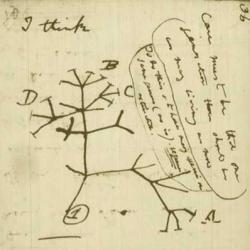 I think
Case must be that one
generation then should be
as many living as now
To do this & to have many species in
same genus (as is) requires
extinction.
36
B
D
C
A
1